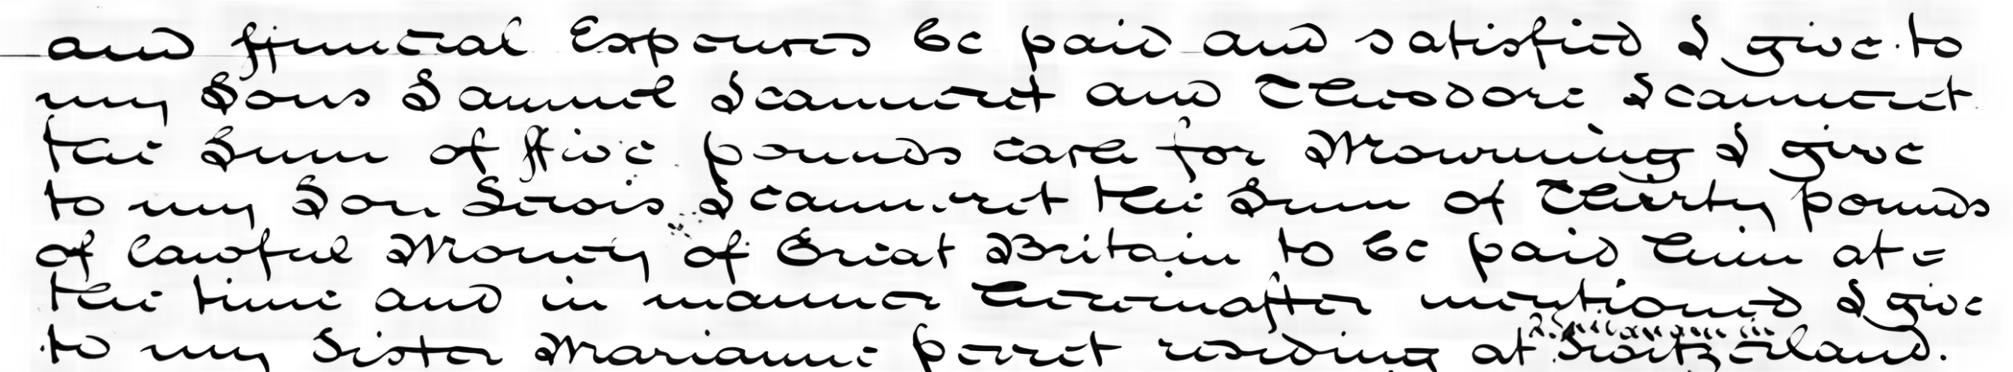 and ffuneral Expences be paid and satisfied I give to
my Sons Samuel Jeanneret and Theodore Jeanneret
the Sum of ffive pounds each for Mourning I give
to my Son Lewis Jeanneret the Sum of Thirty pounds
of lawful Money of Great Britain to be paid him at =
the time and in manner hereinafter mentioned I give
to my Sister Marianne perret residing at Switzerland.